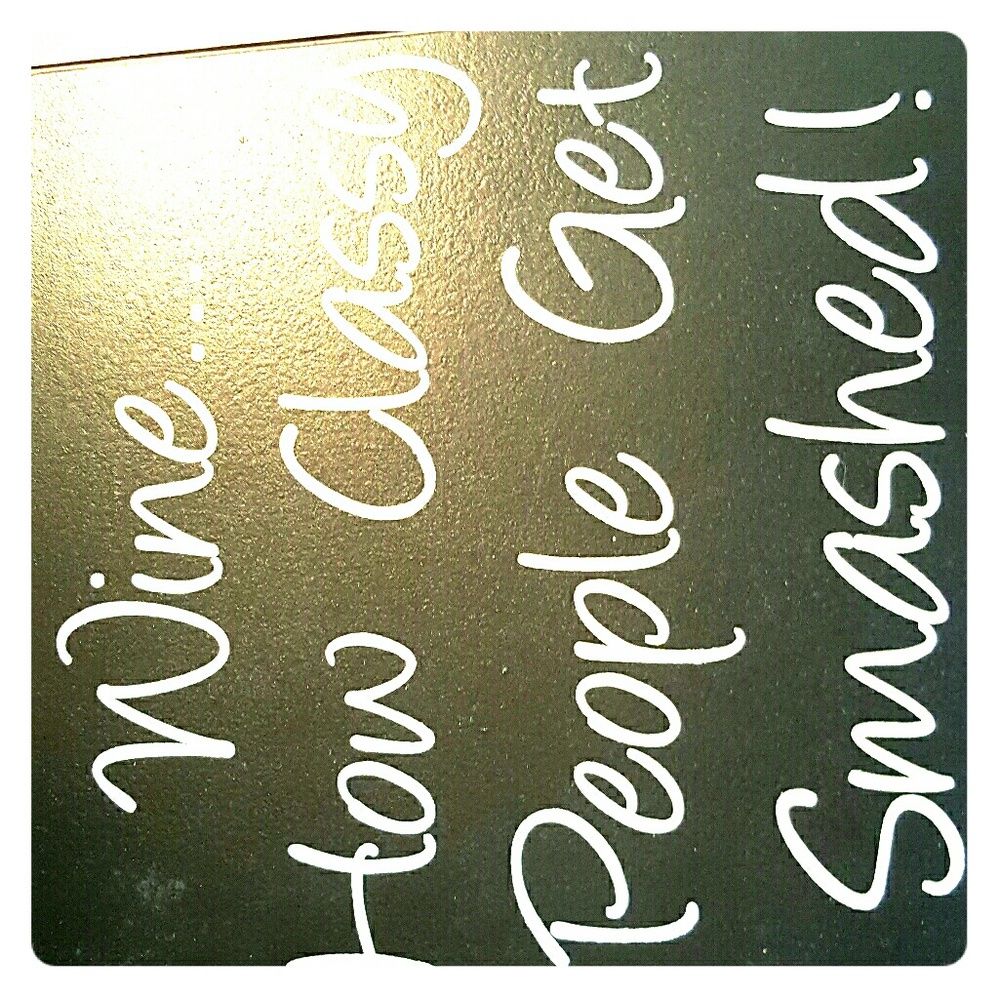 Wine...
How Classy
People Get
Smashed!